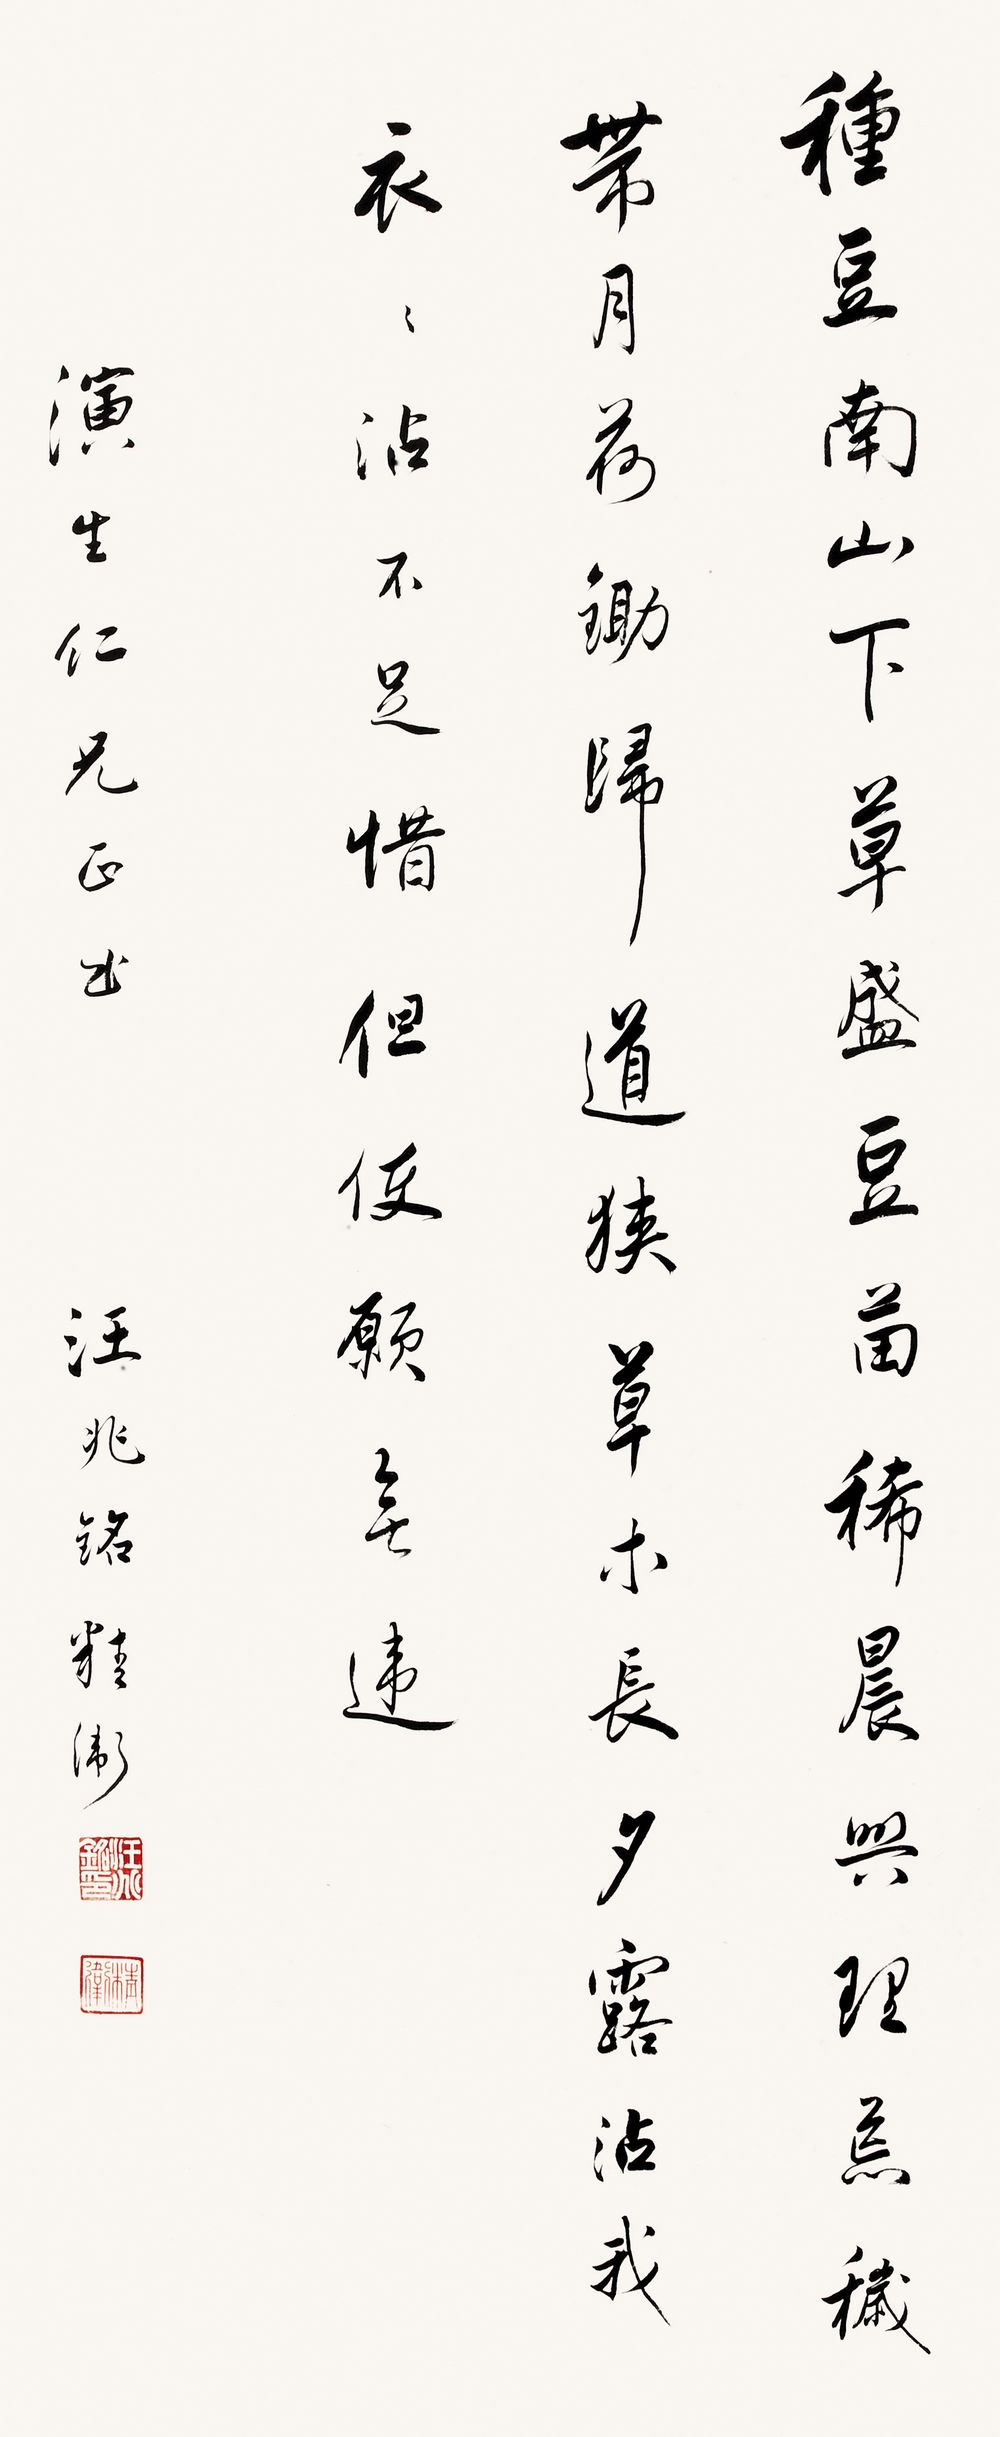 種豆南山下草盛豆苗稀晨興理荒穢
帶月荷鋤歸道狹草木長夕露沾我
衣〻沾不足惜但使願無違
演生仁兄正书
汪兆銘精衛
汪兆銘印
精衛